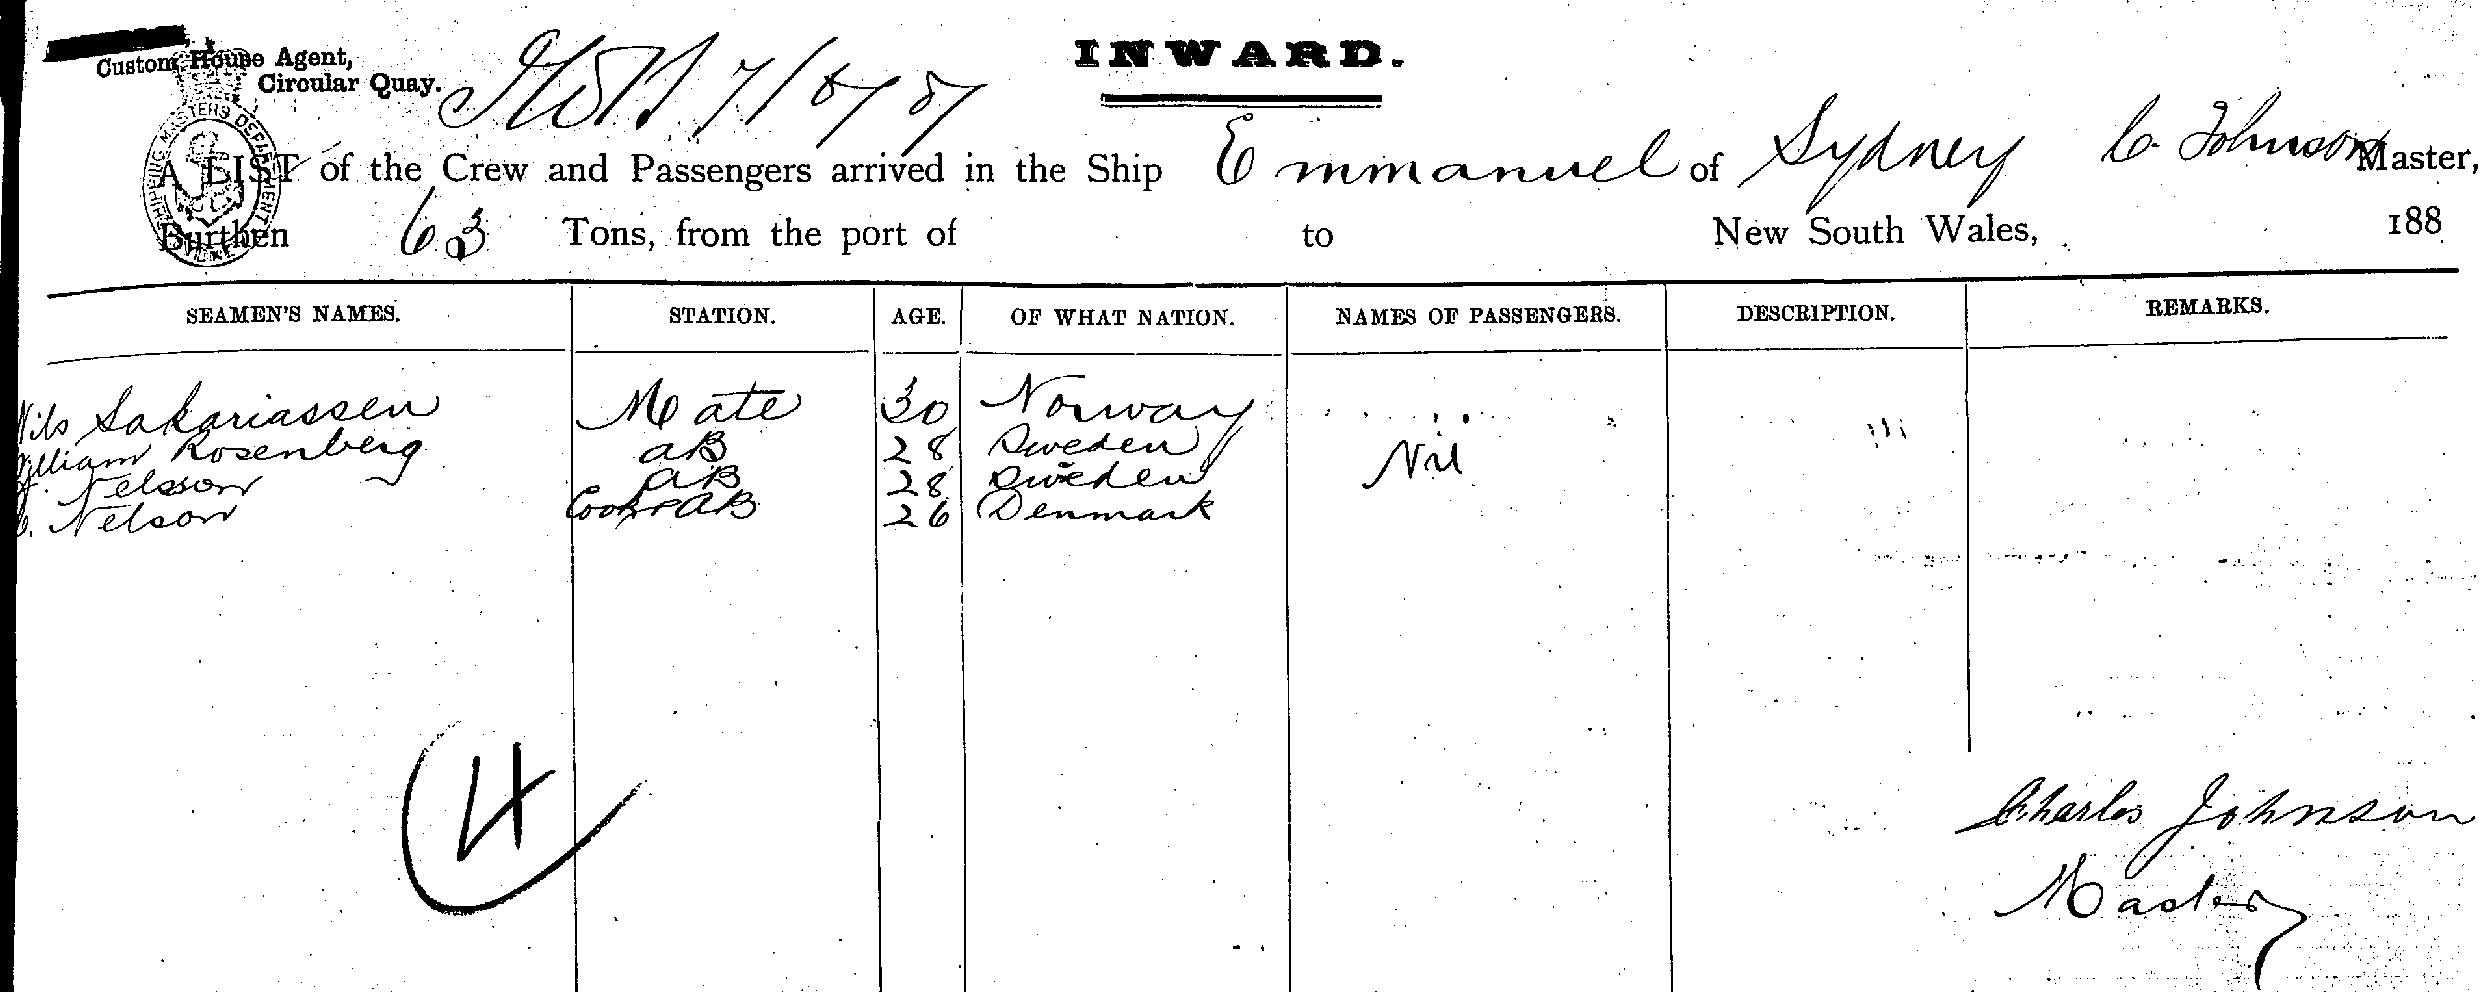 INWARD.
Custom House Agent,
Circular Quay.
SHIPPING MASTERS DEPARTMENT
A LIST of the Crew and Passengers arrived in the Ship Emmanuel of Sydney C. Johnson Master,
Burthen 63 Tons, from the port of to New South Wales, 188
SEAMEN'S NAMES. STATION. AGE. OF WHAT NATION. NAMES OF PASSENGERS. DESCRIPTION. REMARKS.
Nils Sakariassen Mate 30 Norway
William Rosenberg AB 28 Sweden Nil
Nelsson AB 28 Sweden
Nelson Cook & AB 26 Denmark
4
Charles Johnson
Master